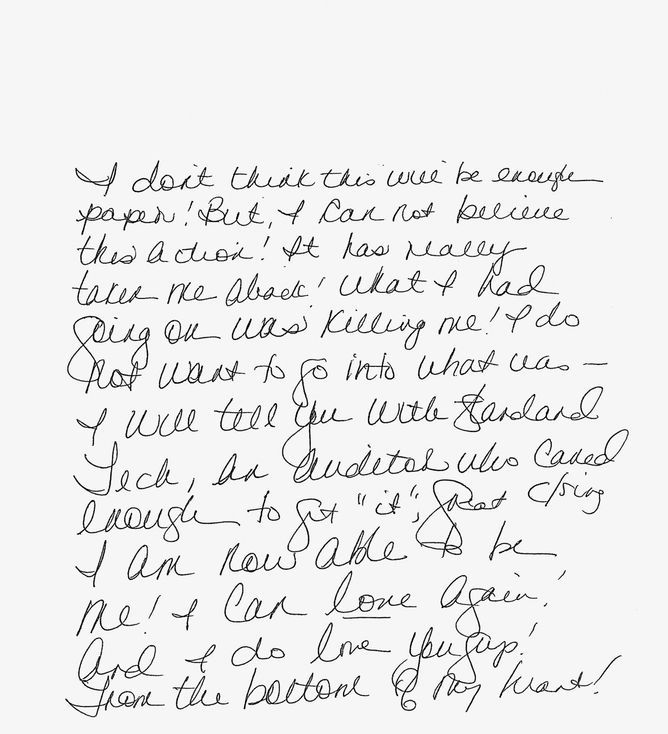 I don't think this will be enough
paper! But, I can not believe
this action! It has really
taken me aback! What I had
going on was killing me! I do
not want to go into what was —
I will tell you with Standard
Tech, an auditor who cared
enough to get "it", great c/sing
I am now able to be
me! I can love again!
And I do love you guys!
From the bottom of my heart!